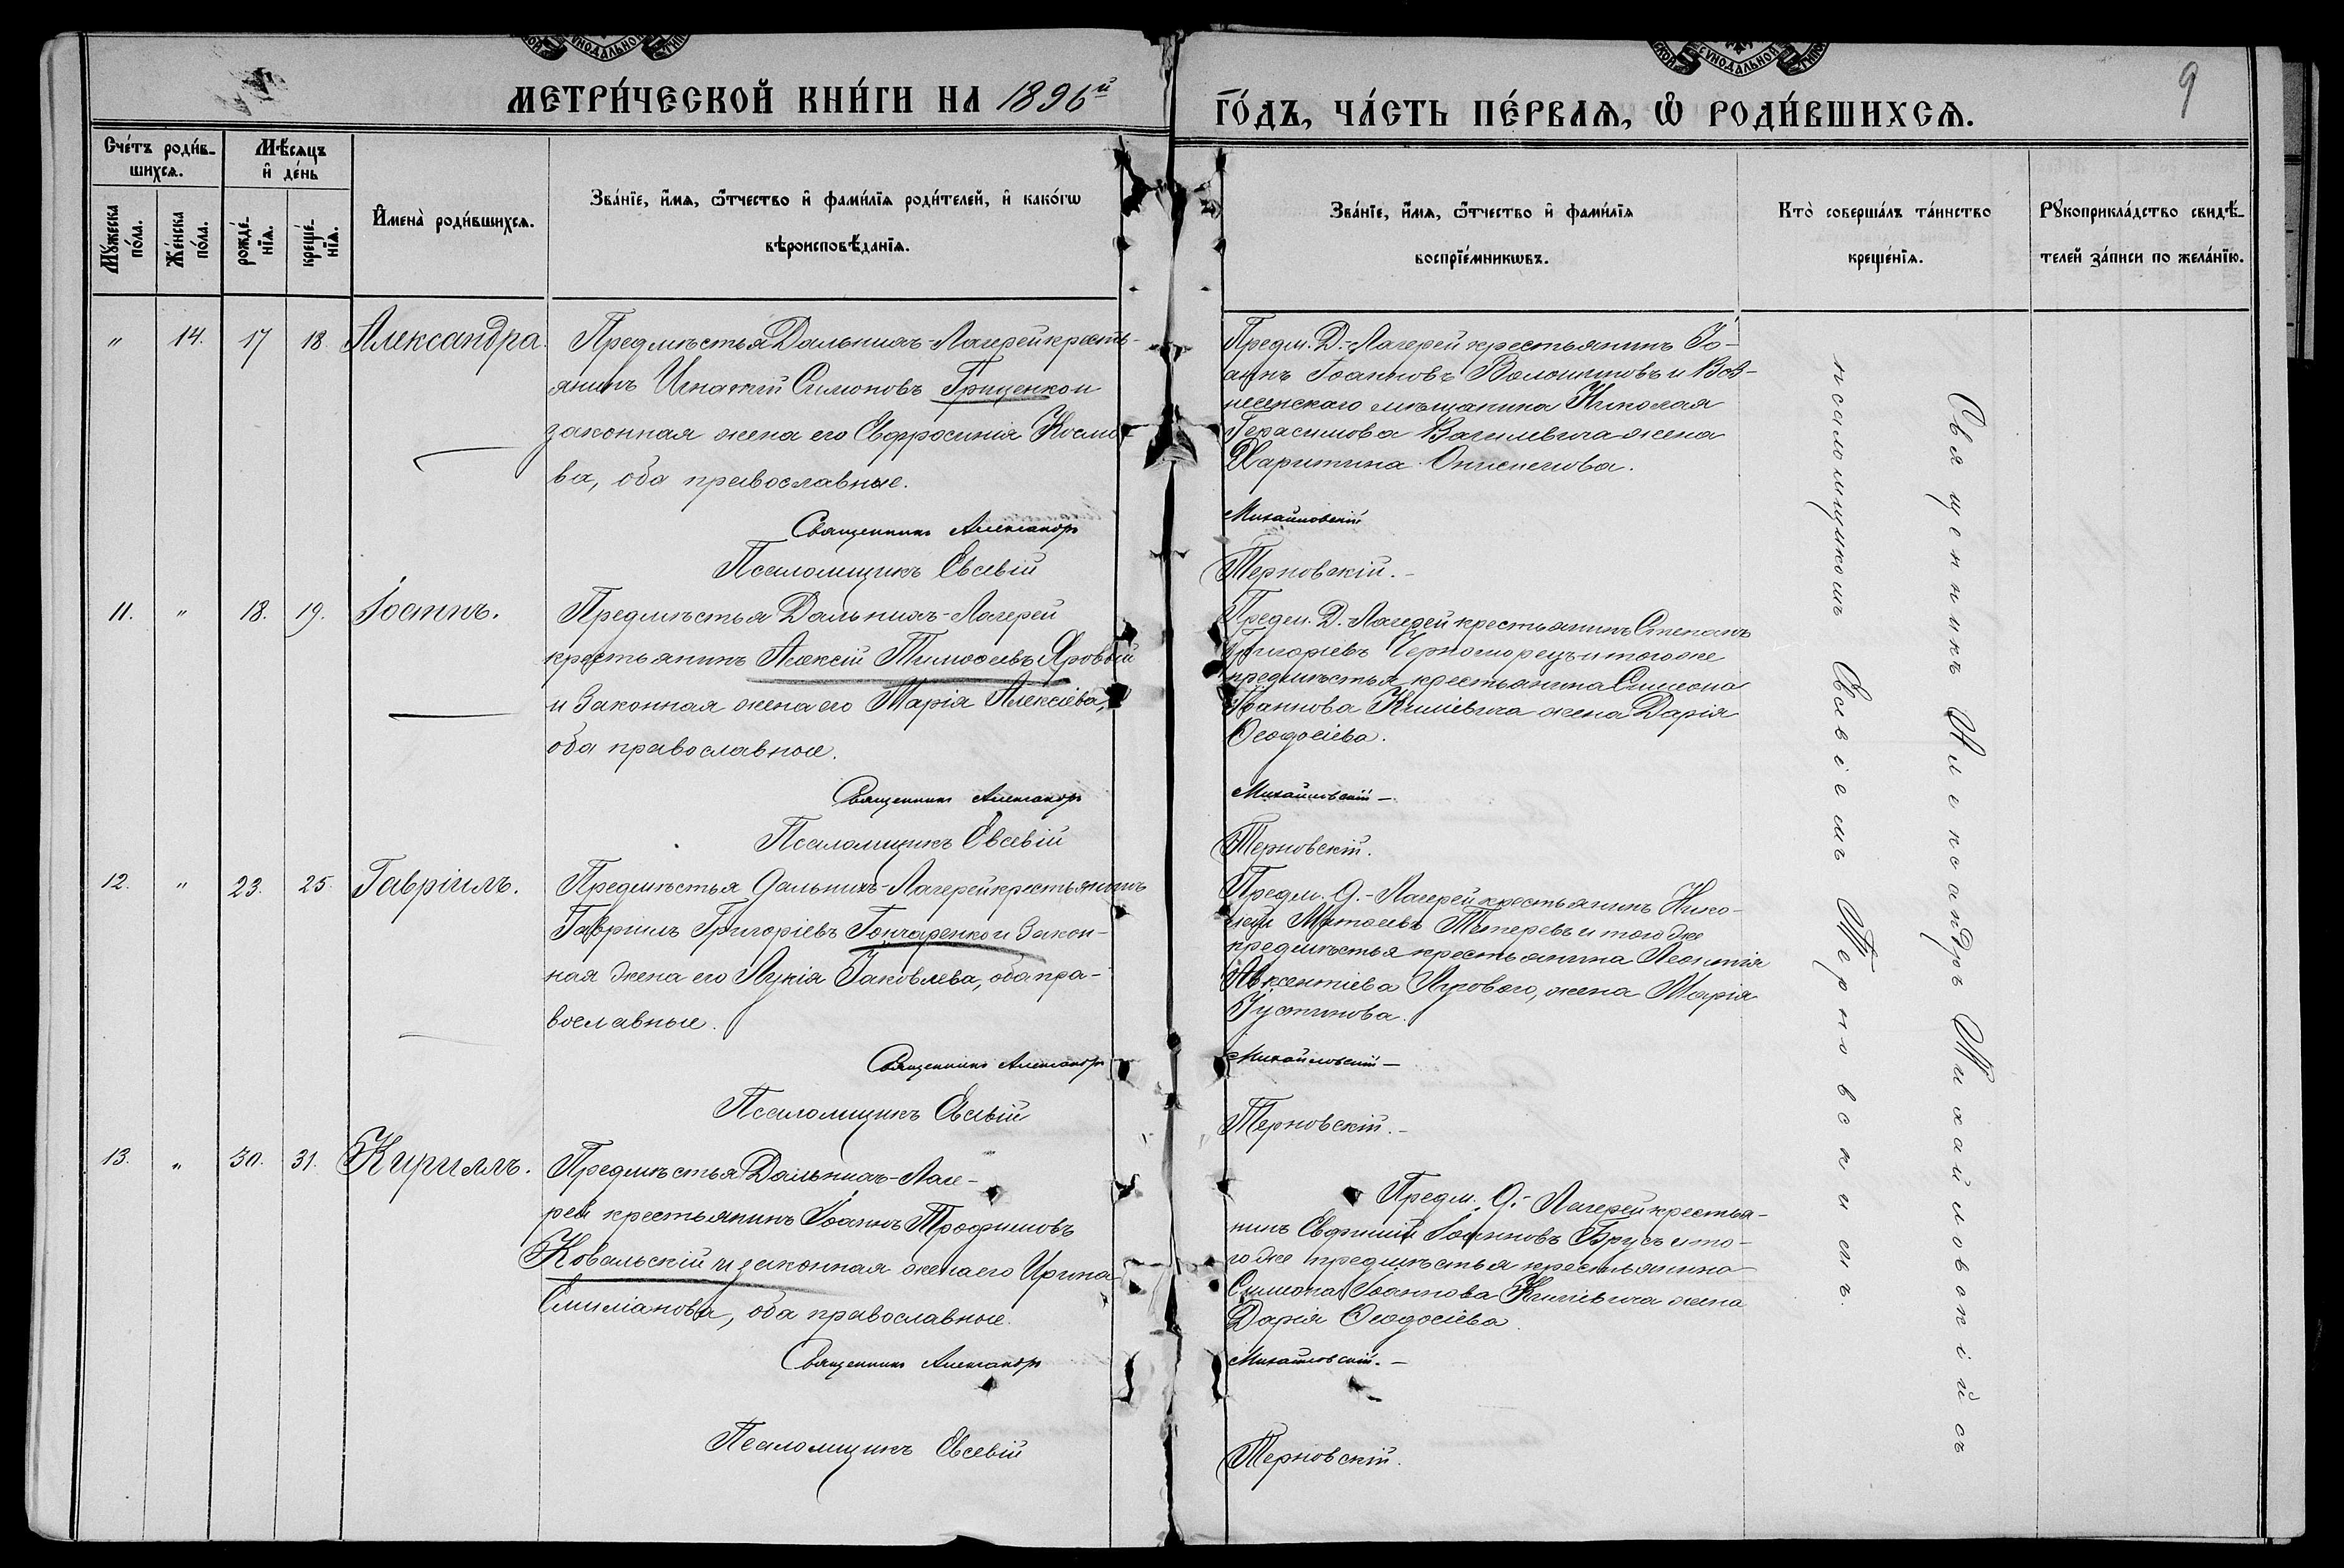 МЕТРИ́ЧЕСКОЙ КНИ́ГИ НА 1896й
ГО́ДЪ, ЧА́СТЬ ПЕ́РВАѦ, Ѡ҆ РОДИ́ВШИХСѦ.
9
Сче́тъ роди́в-
шихсѧ.
Мѣ́сѧцъ
и҆ де́нь
Мꙋ́жеска
по́ла.
Же́нска
по́ла.
рожде́-
нїѧ.
креще́-
нїѧ.
И҆мена̀ роди́вшихсѧ.
Зва́нїе, и҆́мѧ, ѻ҆́тчество и҆ фами́лїѧ роди́телей, и҆ како́гѡ
вѣроисповѣ́данїѧ.
Зва́нїе, и҆́мѧ, ѻ҆́тчество и҆ фами́лїѧ
воспрїе́мникѡвъ.
Кто̀ соверша́лъ та́инство
креще́нїѧ.
Рꙋкоприкла́дство свидѣ́-
телей за́писи по жела́нїю.
" 14. 17 18. Александра.
Предмѣстья Дальнихъ-Лагерей кресть-
янинъ Игнатій Симоновъ Гриценко и
законная жена его Евфросинія Космо-
ва, оба православные.
Священникъ Александръ
Псаломщикъ Евсевій
Предм. Д.-Лагерей крестьянинъ Іо-
аннъ Іоанновъ Волошиновъ и Воз-
несенскаго мѣщанина Николая
Герасимова Вагилевича жена
Харитина Онисимова.
Михайловскій
Терновскій.-
11. " 18. 19. Іоаннъ.
Предмѣстья Дальнихъ-Лагерей
крестьянинъ Алексій Тимоѳеевъ Яровой
и законная жена его Марія Алексіева,
оба православные.
Священникъ Александръ
Псаломщикъ Евсевій
Предм. Д.-Лагерей крестьянинъ Степанъ
Григоріевъ Черноморецъ и того же
предмѣстья крестьянина Симеона
Іоаннова Килиевича жена Дарія
Ѳеодосіева.
Михайловскій-
Терновскій.
12. " 23. 25. Гавріилъ.
Предмѣстья Дальнихъ-Лагерей крестьянинъ
Гавріилъ Григоріевъ Гончаренко и закон-
ная жена его Лукія Іаковлева, оба пра-
вославные.
Священникъ Александръ
Псаломщикъ Евсевій
Предм. Д.-Лагерей крестьянинъ Нико-
лай Тетеревъ и того же
предмѣстья крестьянина Леонтія
Авксентіева Лугового, жена Марія
Іустинова.
Михайловскій-
Терновскій.-
13. " 30. 31. Кириллъ.
Предмѣстья Дальнихъ-Лаге-
рей крестьянинъ Іоаннъ Трофимовъ
Ковальскій и законная жена его Ирина
Емиліанова, оба православные.
Священникъ Александръ
Псаломщикъ Евсевій
Предм. Д.-Лагерей крестья-
нинъ Евфимій Іоанновъ Брусъ и то-
го же предмѣстья крестьянина
Симеона Іоаннова Килиевича жена
Дарія Ѳеодосіева
Михайловскій.-
Терновскій.
Священникъ Александръ Михайловскій съ
псаломщикомъ Евсевіемъ Терновскимъ.